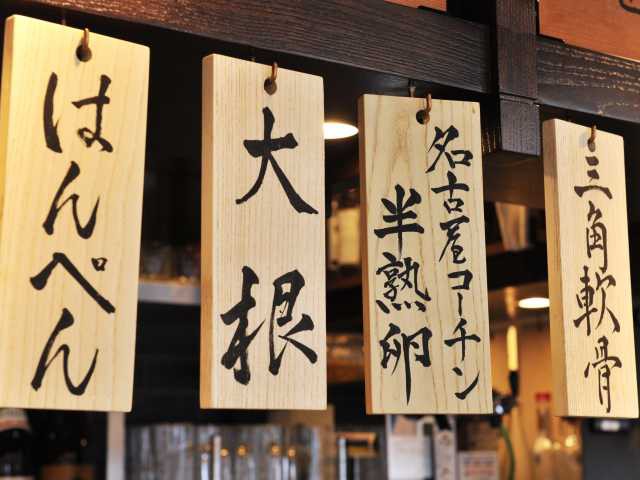 はんぺん
大根
名古屋コーチン
半熟卵
三角軟骨